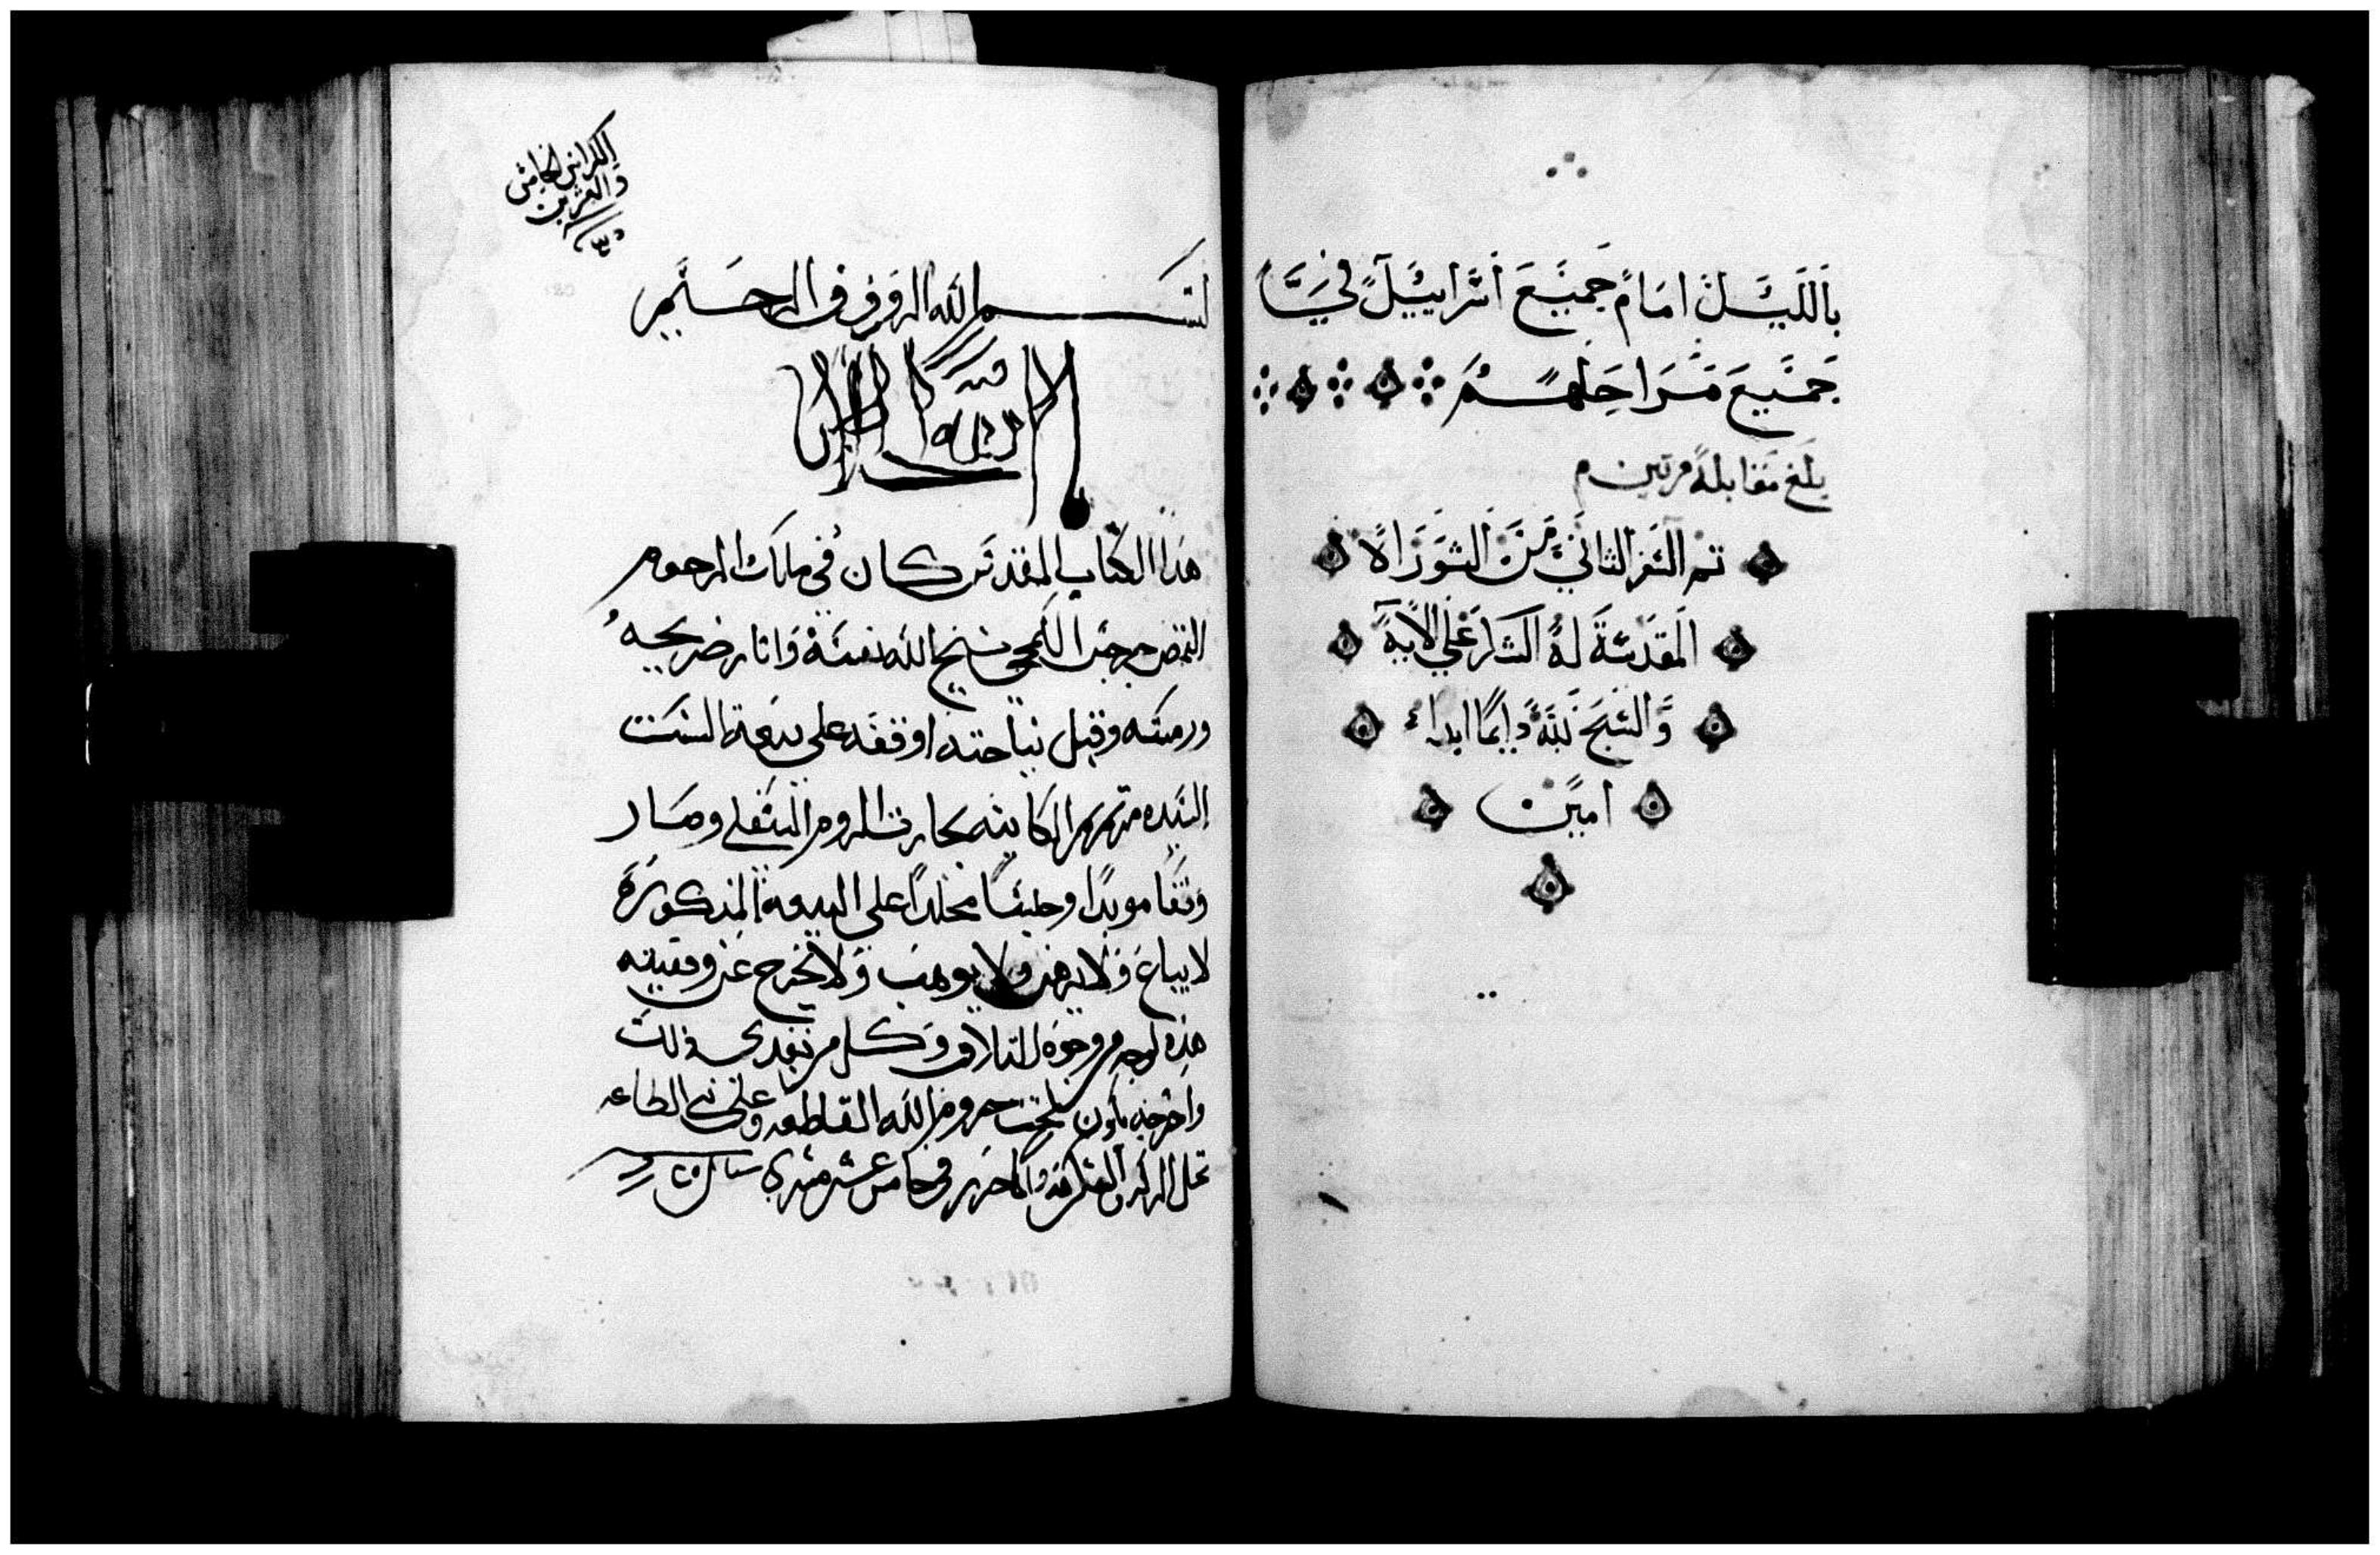 بالليل امام جميع اسراييل في
جميع مراحلهم
بلغ مقابلة مرتين
تم السفر الثاني من التوراة
المقدسة له الشكر علي الابد
والسبح لله دايمًا ابداء
امين
الكراس الخامس
والعشرين
بسم الله الروف الرحيم
هذا الكتاب المقدس كان في ملك المرحوم
القمص جرجس نيح الله نفسه وانار ضريحه
ورمته وقبل نياحته اوقفه على بيعة الست
السيده مرتمريم الكاينه بحارت الروم السفلي وصار
وقفا موبدًا وحبيسًا مخلدًا على البيعة المذكورة
لا يباع ولا يرهن ولا يوهب ولا يخرج عن وقفيته
هذه لوجه من وجوه التلاف وكل من تعدى ذلك
واخرجه يكون تحت حروم الله القاطعه وعلى بني الطاعه
تحل البركه والشكر لله في خامس عشر مسري